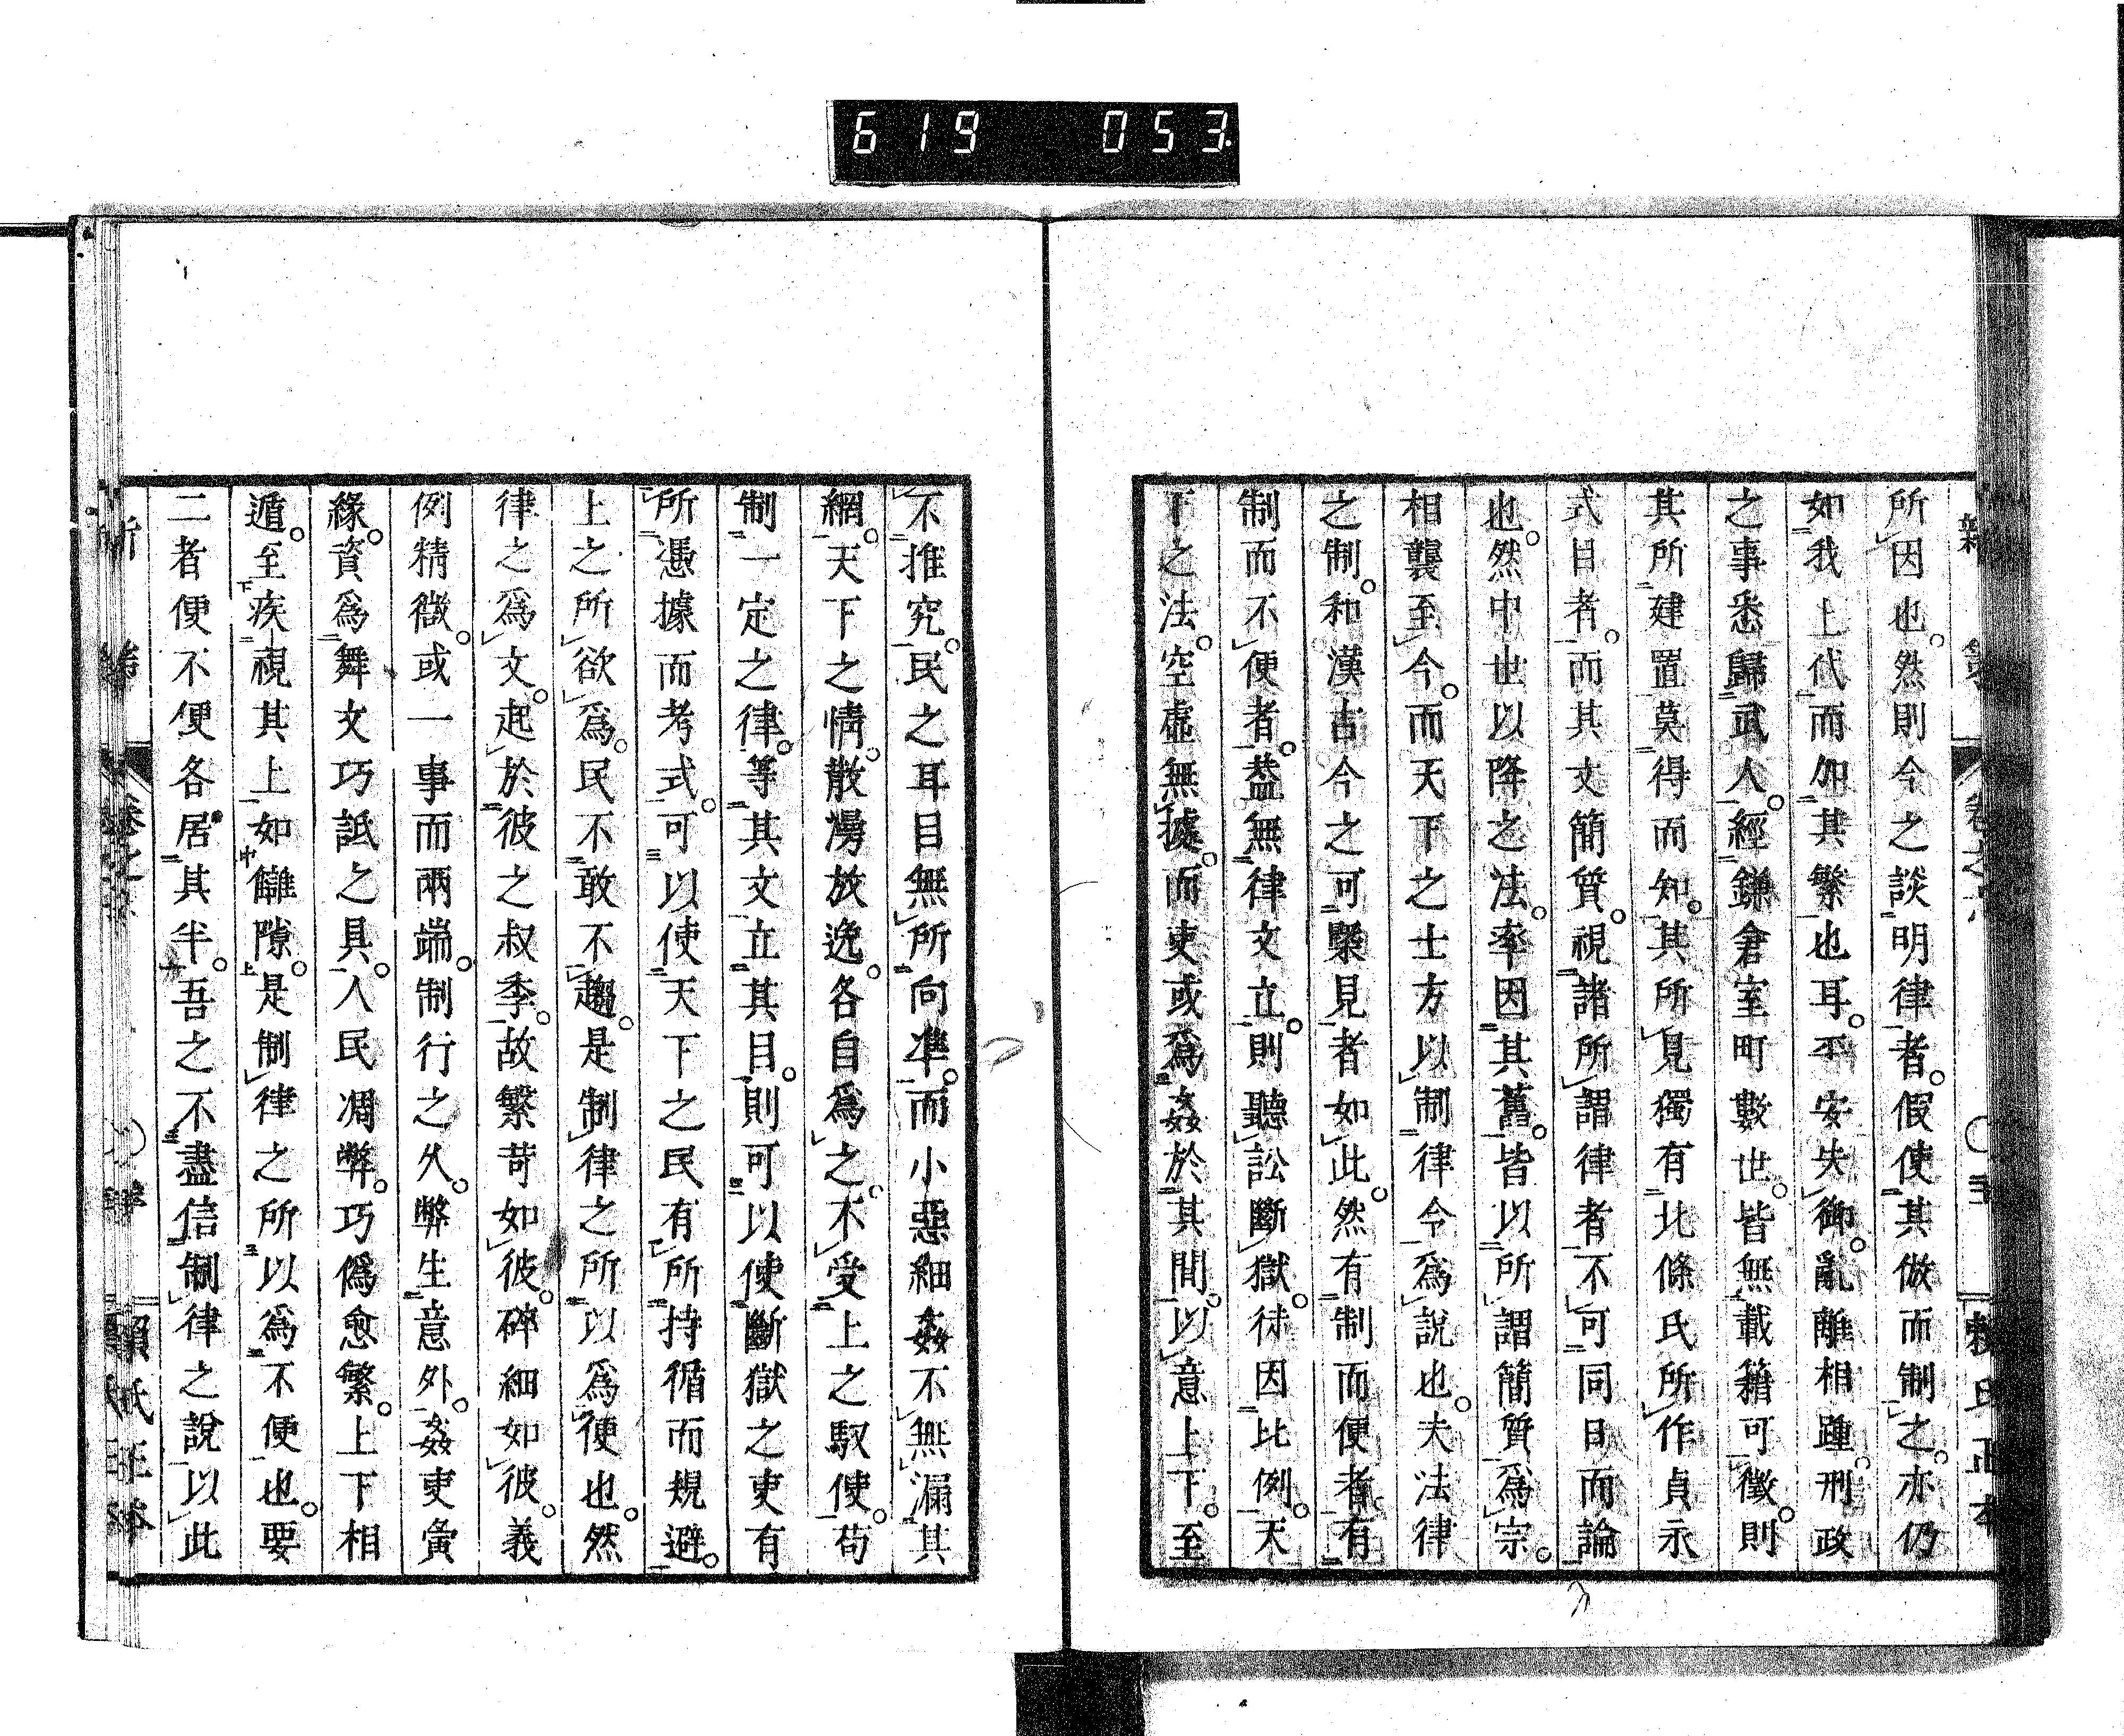 619 053
所因也。然則今之談明律者。假使其倣而制之。亦仍
如我上代而加其繁也耳。平安失御。亂離相踵。刑政
之事悉歸武人。經鎌倉室町數世。皆無載籍可徵。則
其所建置莫得而知。其所見獨有北條氏所作貞永
式目者。而其文簡質。視諸所謂律者不可同日而論
也。然中世以降之法。率因其舊。皆以所謂簡質爲宗。
相襲至今。而天下之士方以制律令爲說也。夫法律
之制。和漢古今之可槩見者如此。然有制而便者。有
制而不便者。蓋無律文立。則聽訟斷獄。徒因比例。天
下之法。空虛無據。而吏或爲姦於其間。以意上下。至
不推究。民之耳目無所向準。而小惡細姦不無漏其
網。天下之情。散漫放逸。各自爲之。不受上之馭使。苟
制一定之律。等其文立其目。則可以使斷獄之吏有
所憑據而考式。可以使天下之民有所持循而規避。
上之所欲爲。民不敢不趨。是制律之所以爲便也。然
律之爲文。起於彼之叔季。故繁苛如彼。碎細如彼。義
例精微。或一事而兩端。制行之久。弊生意外。姦吏夤
緣。資爲舞文巧詆之具。人民凋弊。巧僞愈繁。上下相
遁。至疾視其上如讎隙。是制律之所以爲不便也。要
二者便不便各居其半。吾之不盡信制律之說以此